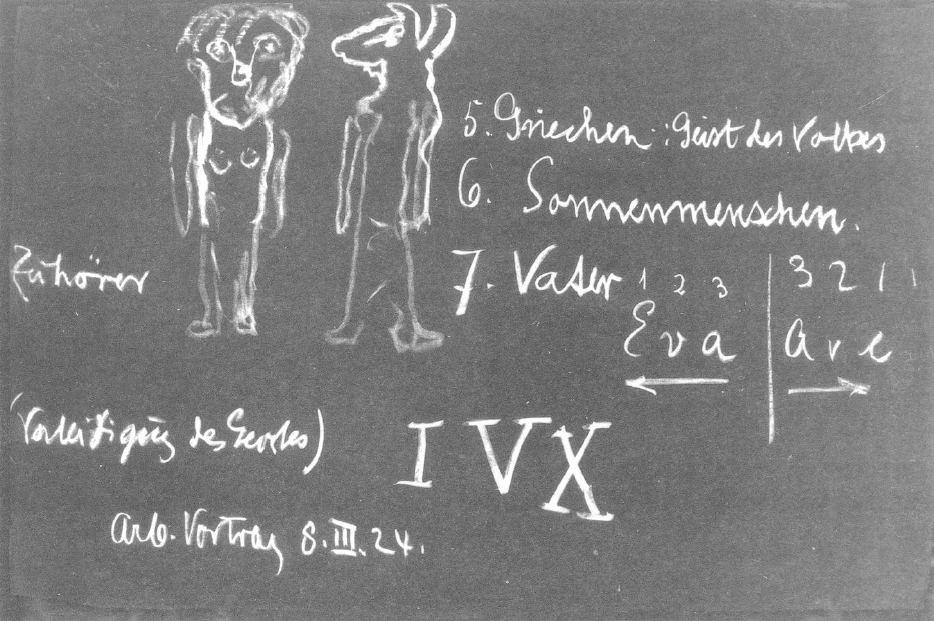 5. Griechen : Geist des Volkes
6. Sonnenmenschen.
Zuhörer
7. Vater
1 2 3 | 3 2 1
Eva | Ave
(Verteidigung des)
I V X
Arb. Vortrag 8.III.24.